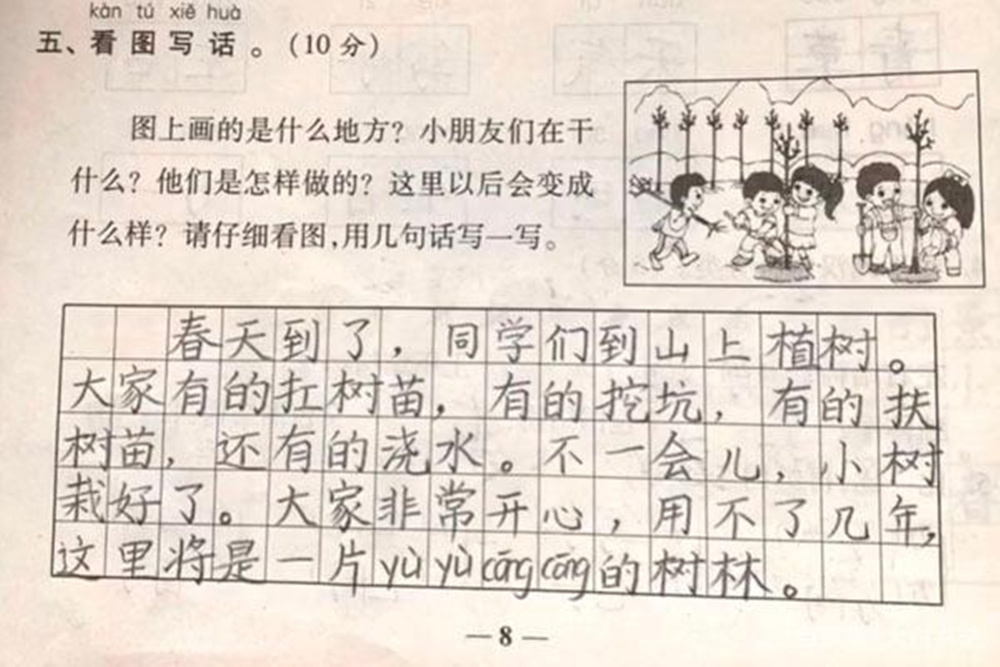 kàn tú xiě huà
五、看图写话。(10分)
图上画的是什么地方？小朋友们在干
什么？他们是怎样做的？这里以后会变成
什么样？请仔细看图,用几句话写一写。
春天到了，同学们到山上植树。
大家有的扛树苗，有的挖坑，有的扶
树苗，还有的浇水。不一会儿，小树
栽好了。大家非常开心，用不了几年，
这里将是一片yù yù cōng cōng的树林。
— 8 —